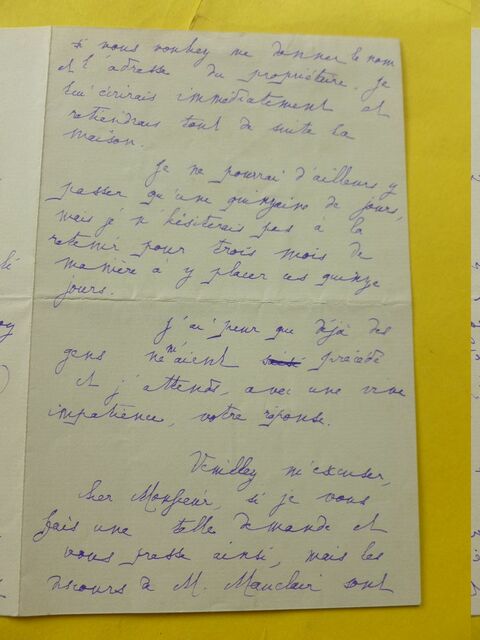 si vous vouliez me donner le nom
et l'adresse du propriétaire. Je
lui écrirais immédiatement et
retiendrais tout de suite la
maison.
Je ne pourrai d'ailleurs y
passer qu'une quinzaine de jours,
mais je n'hésiterais pas à la
retenir pour trois mois de
manière à y placer ces quinze
jours.
J'ai peur que déjà des
gens ne m'aient précédé
et j'attends, avec une vive
impatience, votre réponse.
Veuillez m'excuser,
cher Monsieur, si je vous
fais une telle demande et
vous presse ainsi, mais les
discours de M. Mauclair sont